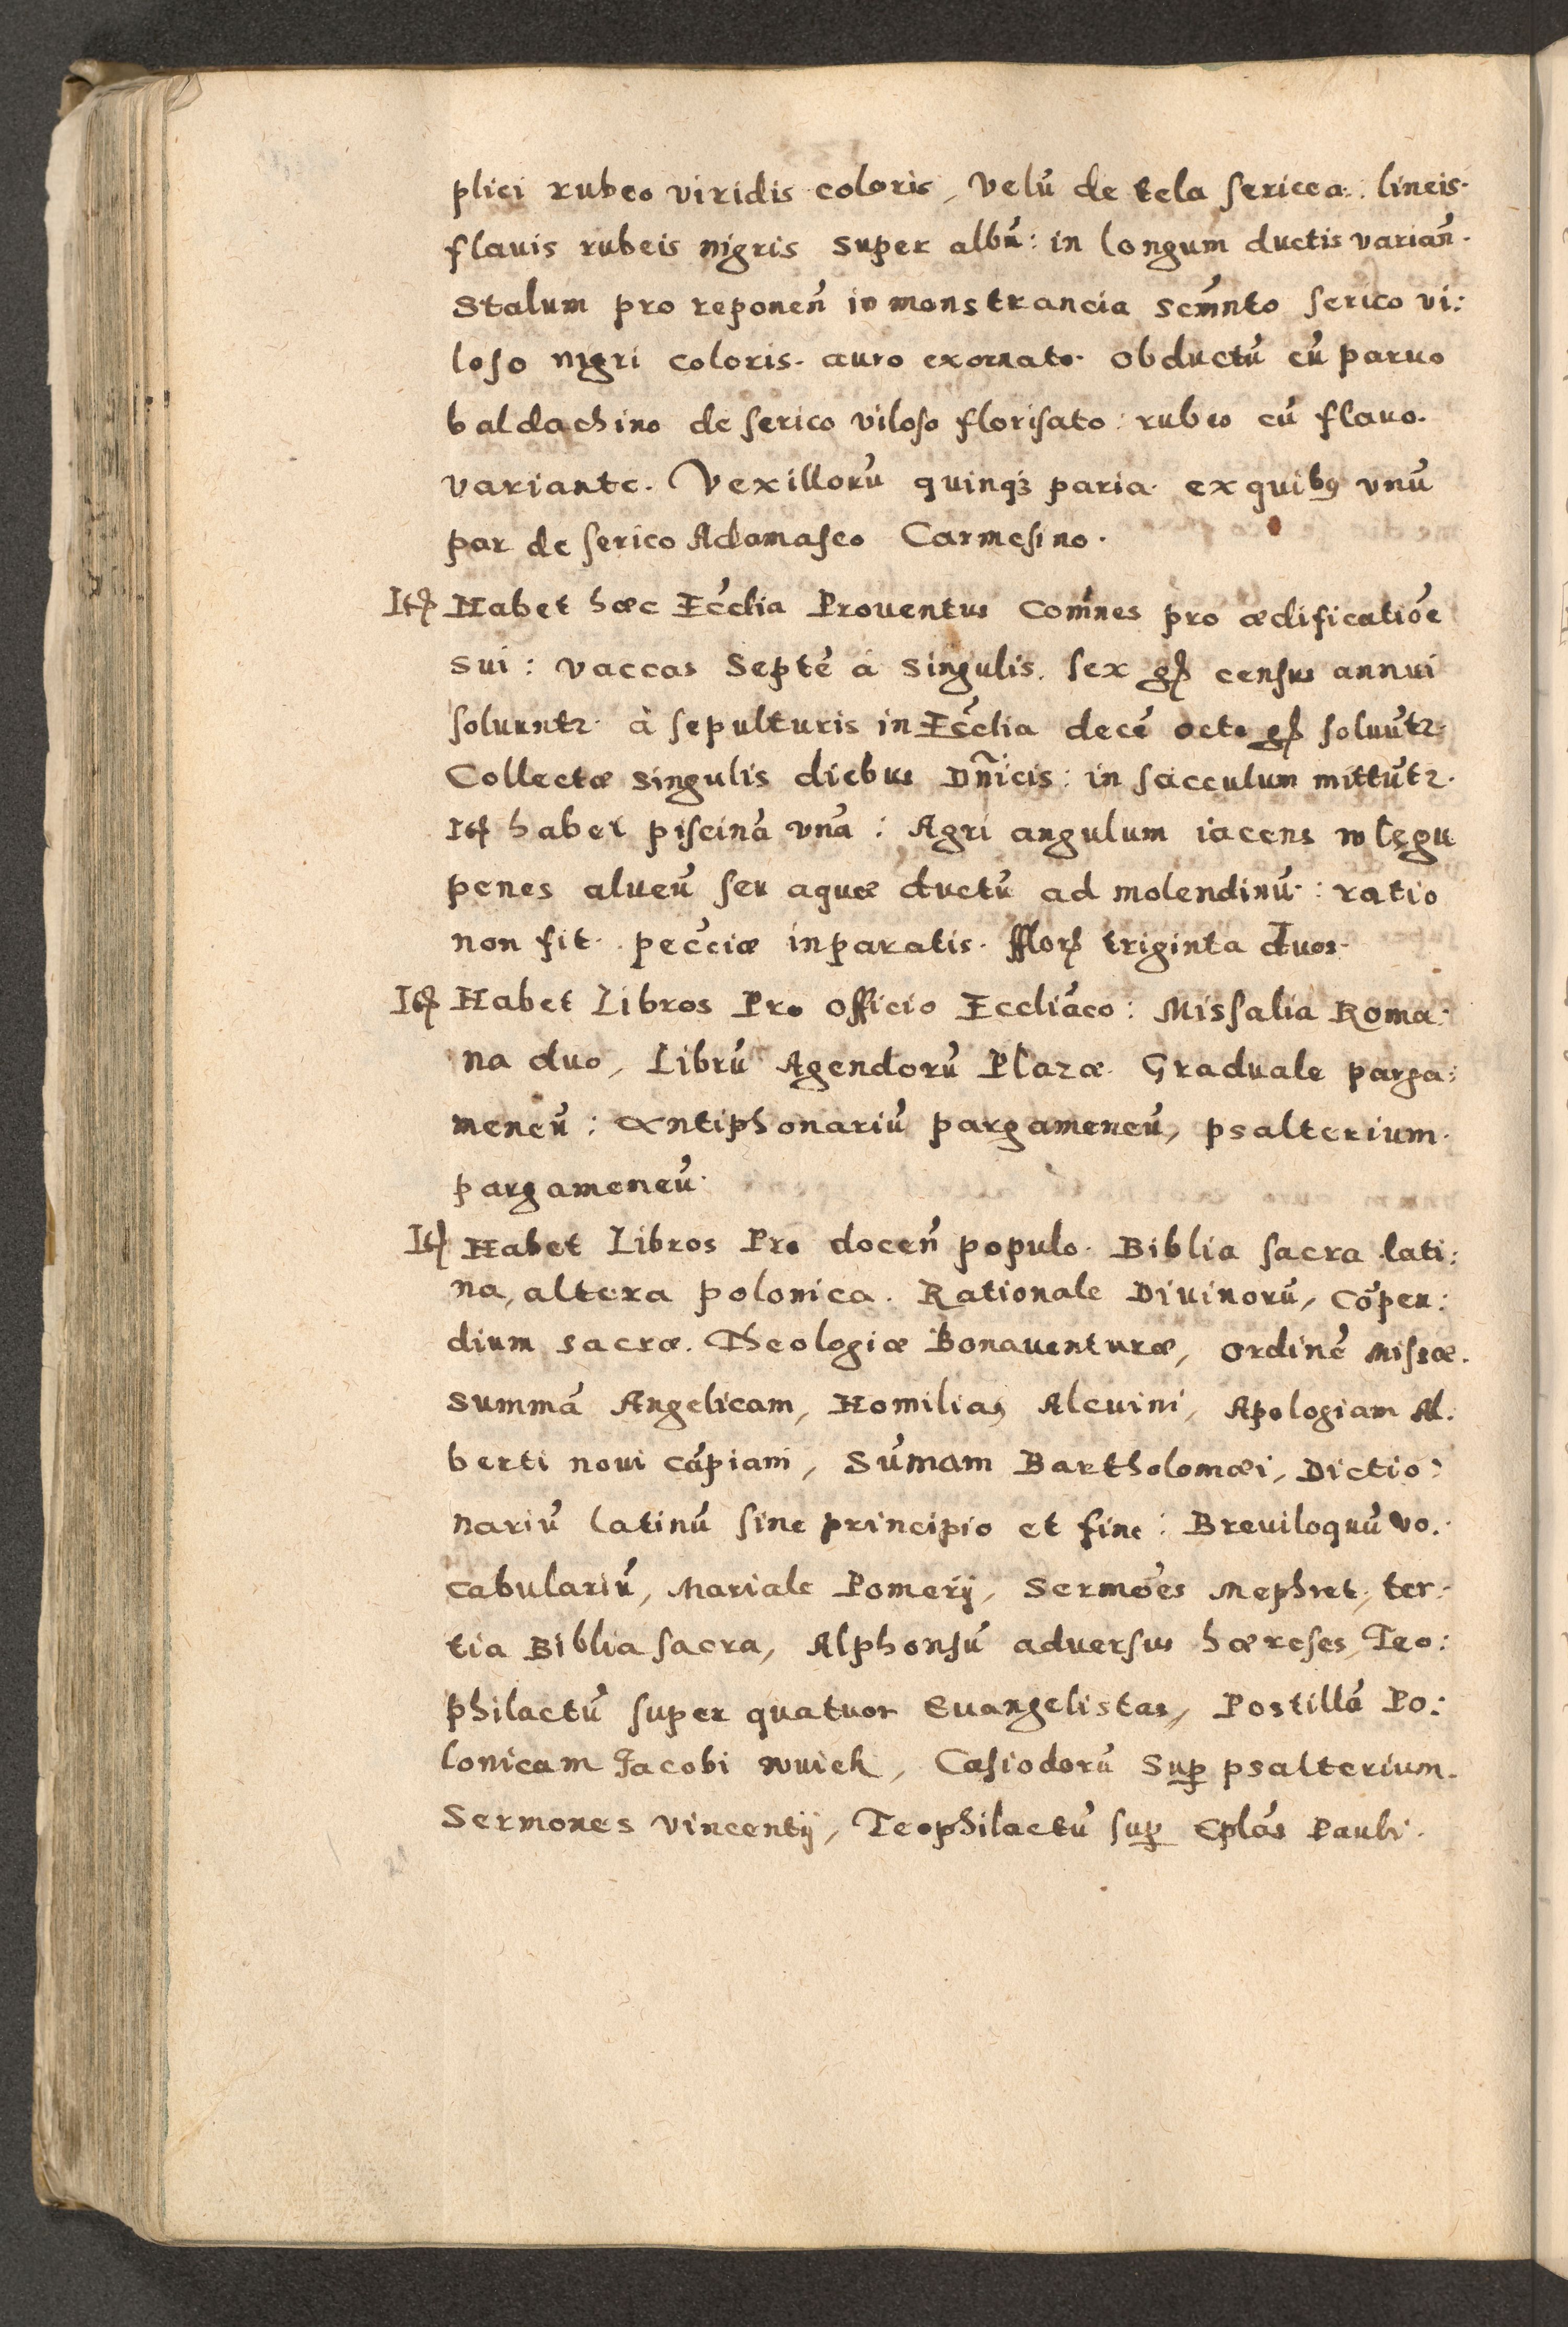 plici rubeo viridis coloris, velū de tela sericea: lineis
flauis rubeis nigris super albū: in longum ductis varian̄.
Stalum pro reponen̄ in monstrancia scm̄nto serico vi:
loso nigri coloris. auro exornato. obductū cū paruo
baldachino de serico viloso florisato: rubeo cū flauo.
variante. Vexillorū quinqꝫ paria. ex quibꝯ vnū
par de serico Adamasco Carmesino.
Itꝭ Habet hæc Ecc̄lia Prouentus Com̄nes pro ædificatiōe
sui: vaccas Septē à singulis. sex gꝭ census annui
soluuntꝛ. à sepulturis in Ecc̄lia decē octo gꝭ soluūtꝛ.
Collectæ singulis diebus Dn̄icis: in sacculum mittūtꝛ.
Itꝭ habet piscinā vnā: Agri angulum iacens w lęgu
penes alueū seu aquæ ductū ad molendinū: ratio
non fit. pecc̄iæ inparatis. fflorꝭ triginta duos.
Itꝭ Habet Libros Pro officio Eccliāco: Missalia Roma:
na duo, Librū Agendorū Plazæ. Graduale parga:
meneū: Antiphonariū pargameneū, psalterium.
pargameneū.
Itꝭ Habet Libros Pro docen̄ populo. Biblia sacra lati:
na, altera polonica. Rationale Diuinorū, Cōpen:
dium sacræ. Theologiæ Bonauenturæ, ordinē Missæ.
Summā Angelicam, Homilias Alcuini, Apologiam Al:
berti noui cāpiani, Sum̄am Bartholomæi, Dictio:
nariū latinū sine principio et fine: Breuiloquū vo:
cabulariū, Mariale Pomerij, Sermōes Mephret, ter:
tia Biblia sacra, Alphonsū aduersus hæreses, Teo:
philactū super quatuor Euangelistas, Postillā Po:
lonicam Jacobi wuiek, Casiodorū Suꝑ psalterium.
Sermones Vincentij, Teophilactū suꝑ Eplās Pauli.